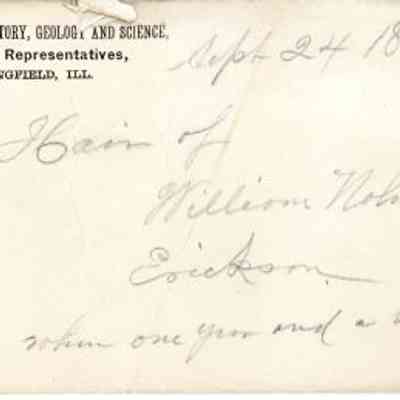 TORY, GEOLOGY AND SCIENCE,
Representatives,
NGFIELD, ILL.
Sept 24 18
Hair of
William Noh
Erickson
when one year and a